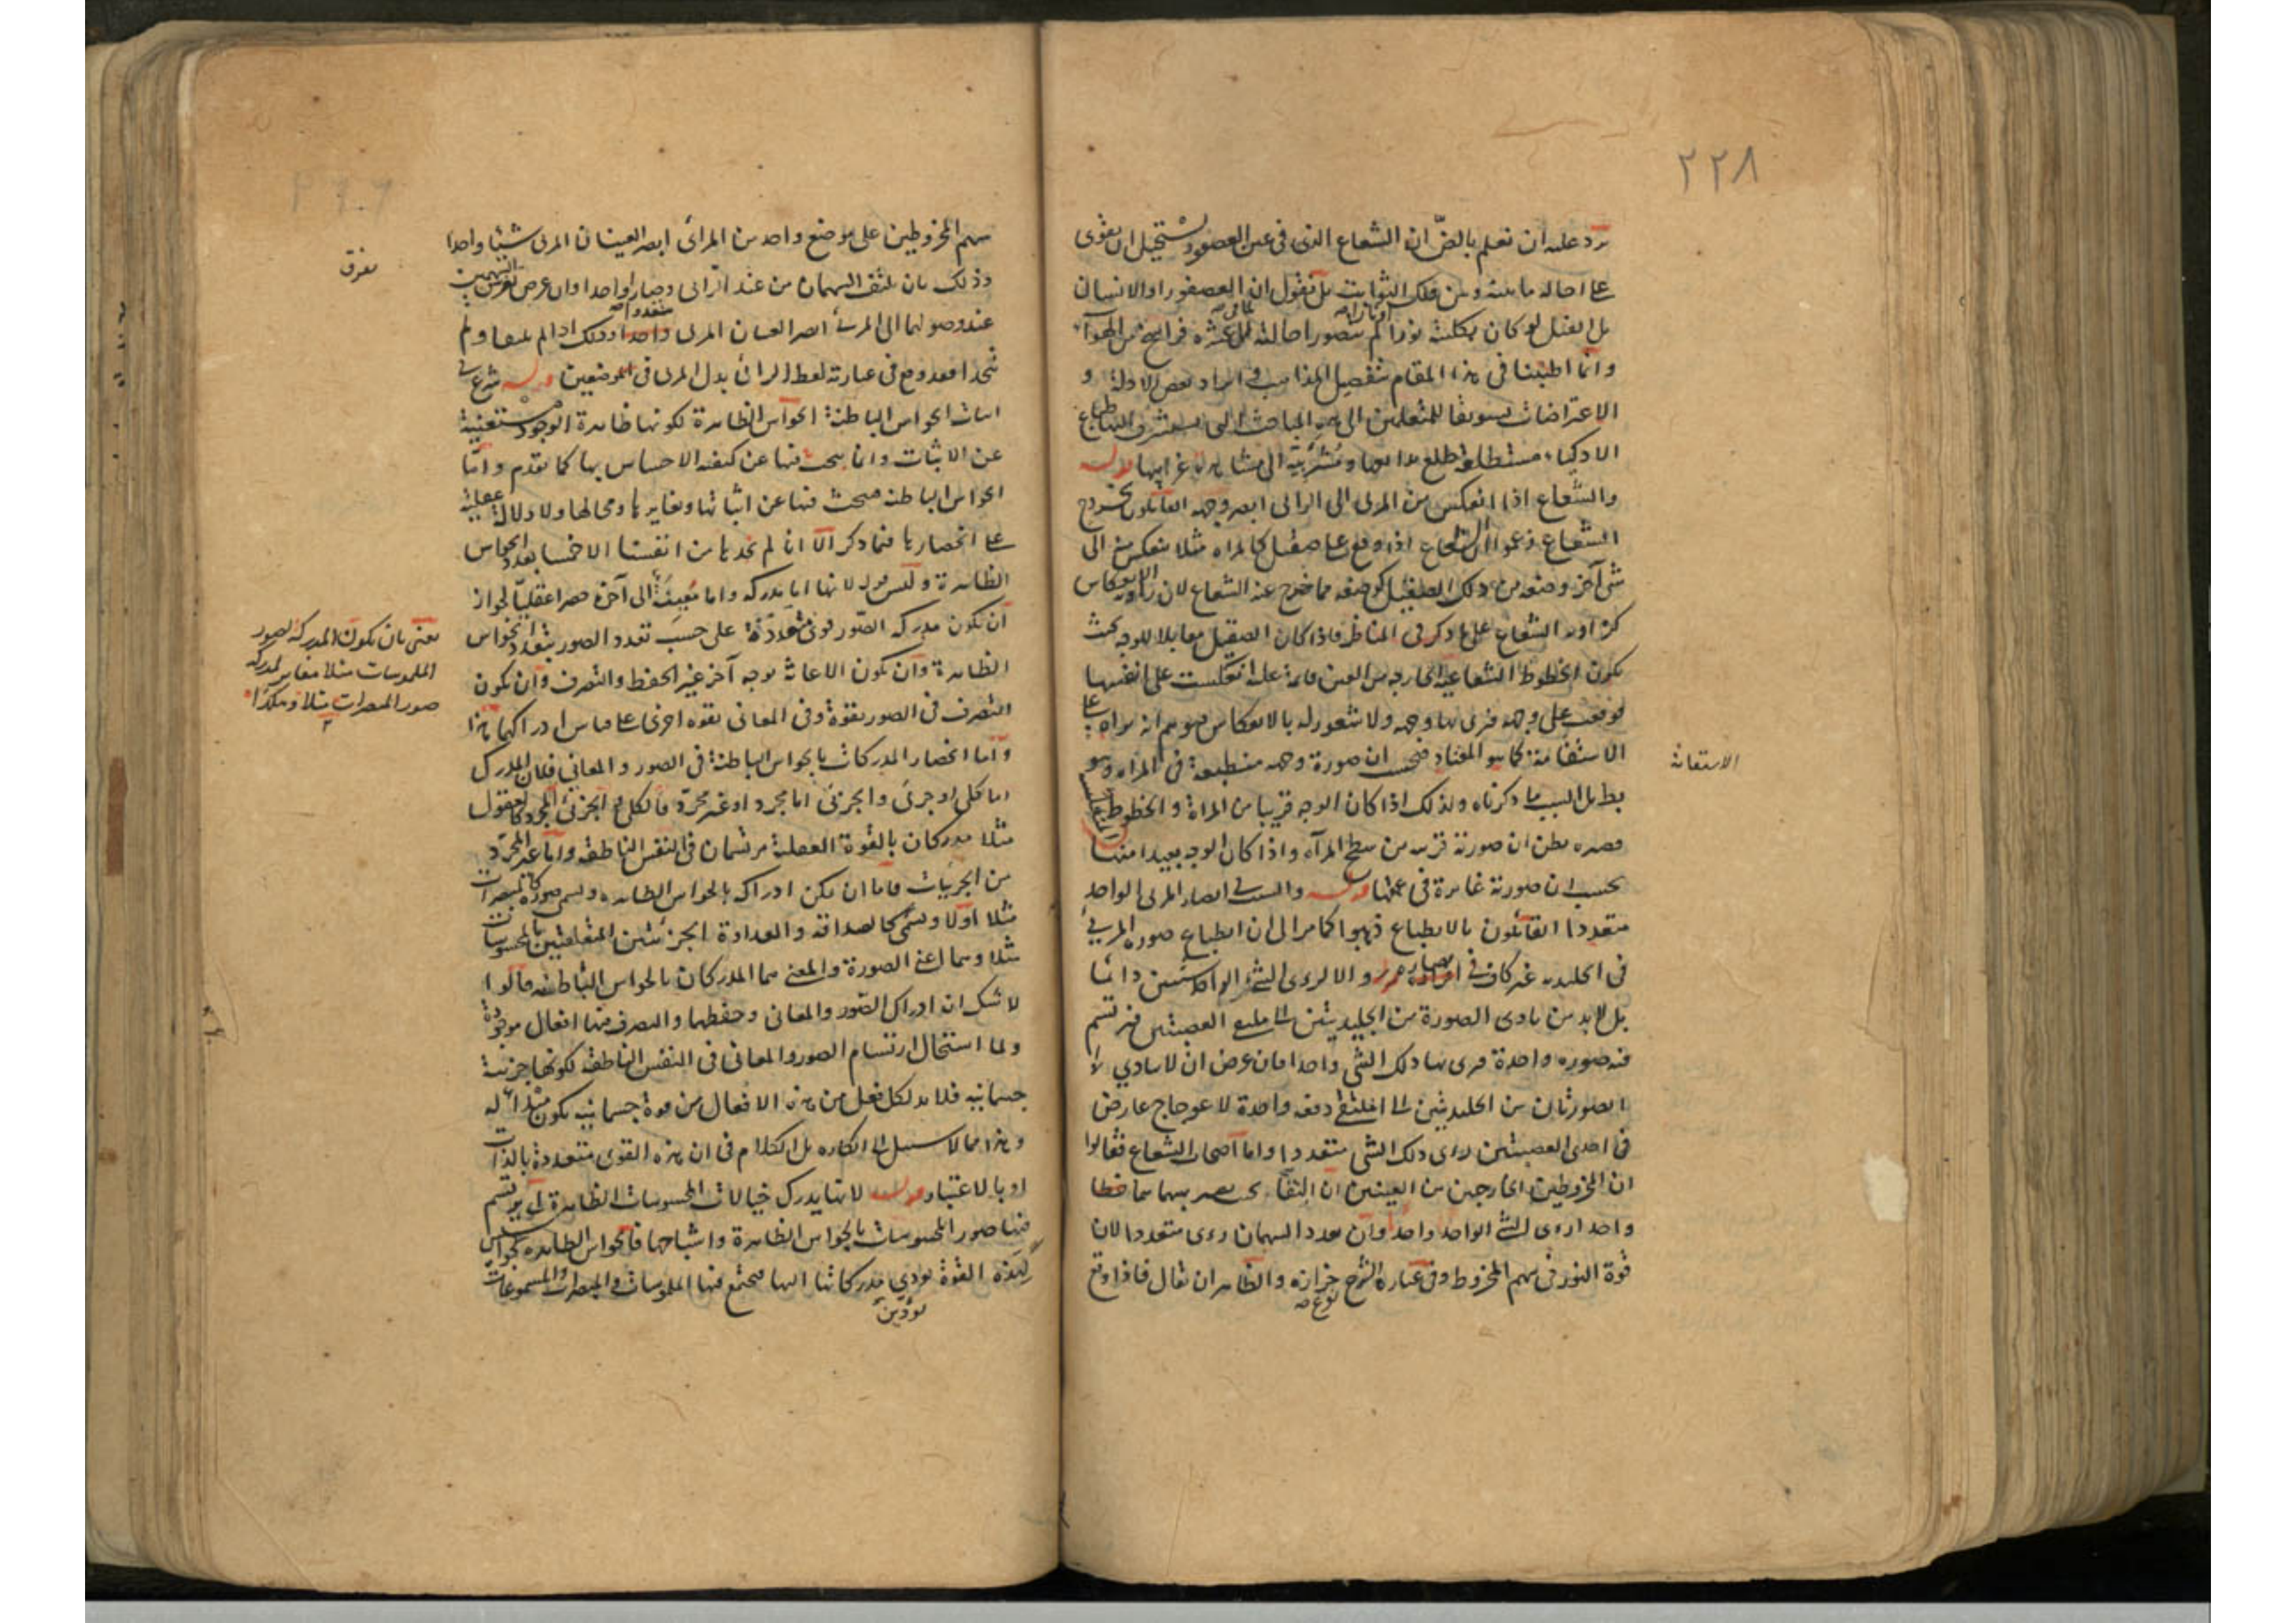 ٢٢٨
يرد عليه ان نعلم بالضرورة ان الشعاع الذى فى عين العصفور يستحيل ان يقوى
على احالة ما بينه وبين فلك الثوابت بل نقول ان العصفور او الانسان
بل الفيل لو كان بكليته نورا لم يتصور احالته لما فى عشرة فراسخ من الهواء
وانما اطنبنا فى هذا المقام بتفصيل المذاهب وايراد بعض الادلة و
الاعتراضات تشويقا للمتعلمين الى هذه المباحث التى يستشرف الطباع
الاذكياء مستطلعة طلع بدايعها ومشرئبة الى مشاهدة غرايبها قوله
والشعاع اذا انعكس من المرئى الى الرائى ابصر وجهه القائلون بخروج
الشعاع زعموا ان الشعاع اذا وقع على صقيل كالمراة مثلا ينعكس منه الى
شئ آخر وضعه من ذلك الصقيل كوضعه مما خرج عنه الشعاع لان زاوية الانعكاس
كزاوية الشعاع على ما ذكر فى المناظر فاذا كان الصقيل مقابلا للوجه بحيث
يكون الخطوط الشعاعية الخارجة من العين قائمة عليه انعكست على انفسها
فوقعت على وجهه فرئى بها وجهه ولا شعور له بالانعكاس فيوهم انه يراه على
الاستقامة كما هو المعتاد فيحسب ان صورة وجهه منطبعة فى المراة وهو
بطل السبب ما ذكرناه ولذلك اذا كان الوجه قريبا من المراة والخطوط المنعكسة
قصيرة يظن ان صورته قريبة من سطح المرآة واذا كان الوجه بعيدا منها
يحسب ان صورته غائرة فى عمقها قوله والسبب فى ابصار المرئى الواحد
متعددا القائلون بالانطباع ذهبوا كما مر الى ان انطباع صورة المرئى
فى الجليدية غير كاف فى ابصاره والا لرؤى الشئ الواحد شيئين دائما
بل لا بد من تادى الصورة من الجليديتين الى ملتقى العصبتين فيرتسم
فيه صورة واحدة فيرى بها ذلك الشئ واحدا فان عرض ان لا يتادى
الصورتان من الجليديتين الى الملتقى دفعة واحدة لاعوجاج عارض
فى احدى العصبتين رؤى ذلك الشئ متعددا واما اصحاب الشعاع فقالوا
ان المخروطين الخارجين من العينين ان التقيا بحيث يصير سهماهما خطا
واحدا رؤى الشئ الواحد واحدا وان تعدد السهمان رؤى متعددا لان
قوة النور فى سهم المخروط وفى عبارة الشرح حزازة والظاهر ان يقال فاذا وقع
نوع صح
الاستقامة
سهم المخروطين على موضع واحد من المرائى ابصر العينان المرئى شيئا واحدا
وذلك بان يلتقى السهمان من عند الرائى وصارا واحدا وان عرض تفرق السهمين
عند وصولهما الى المرئى ابصر العينان المرئى متعددا وذلك اذا لم يلتقيا ولم
يتحدا فقد وقع فى عبارته لفظ الرائى بدل المرئى فى الموضعين قوله شرع فى
اثبات الحواس الباطنة الحواس الظاهرة لكونها ظاهرة الوجود مستغنية
عن الاثبات وانما يبحث فيها عن كيفية الاحساس بها كما تقدم واما
الحواس الباطنة فيبحث فيها عن اثباتها وتغايرها ومحالها ولا دلالة عقلية
على انحصارها فيما ذكر الا انا لم نجد ها من انفسنا الا خمسا بعدد الحواس
الظاهرة وليس قوله لانها اما مدركة واما معينة الى آخره حصرا عقليا لجواز
ان تكون مدركة الصور قوى متعددة على حسب تعدد الصور بتعدد الحواس
الظاهرة وان تكون الاعانة بوجه آخر غير الحفظ والتصرف وان تكون
التصرف فى الصور بقوة وفى المعانى بقوة اخرى على قياس ادراكهما هذا
واما انحصار المدركات بالحواس الباطنة فى الصور والمعانى فلان المدرك
اما كلى او جزئى والجزئى اما مجرد او غير مجرد فالكلى والجزئى المجرد كالعقول
مثلا مدركان بالقوة العقلية مرتسمان فى النفس الناطقة واما غير المجرد
من الجزئيات فاما ان يمكن ادراكه بالحواس الظاهرة ويسمى صورة كالمبصرات
مثلا اولا ويسمى كالصداقة والعداوة الجزئيتين المتعلقتين بالمحسوسات
مثلا وهما اعنى الصورة والمعنى هما المدركان بالحواس الباطنة قالوا
لا شك ان ادراك الصور والمعانى وحفظهما والتصرف فيها افعال موجودة
ولما استحال ارتسام الصور والمعانى فى النفس الناطقة لكونها جزئية
جسمانية فلا بد لكل فعل من هذه الافعال من قوة جسمانية تكون مبدأ له
وهذا مما لا سبيل الى انكاره بل الكلام فى ان هذه القوى متعددة بالذات
او بالاعتبار قوله لانها يدرك خيالات المحسوسات الظاهرة اى يرتسم
فيها صور المحسوسات بالحواس الظاهرة واشباحها فالحواس الظاهرة كجواسيس
لهذه القوة تؤدى مدركاتها اليها فيجتمع فيها الملموسات والمبصرات والمسموعات
تفرق
يعنى بان تكون المدركة لصور
الملموسات مثلا مغايرا لمدركة
صور المبصرات مثلا وهكذا